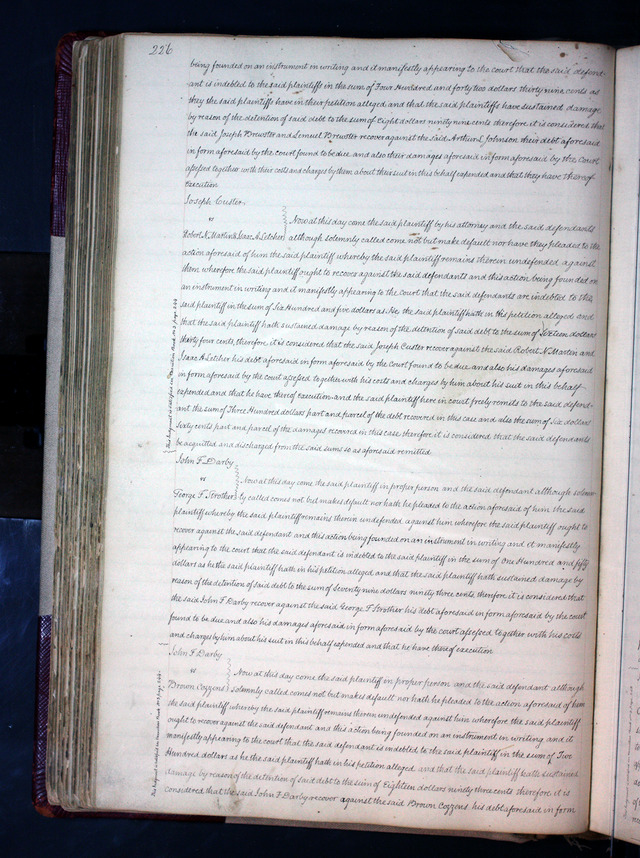 226
being founded on an instrument in writing and it manifestly appearing to the court that the said defend-
ant is indebted to the said plaintiffs in the sum of Four Hundred and forty two dollars thirty nine cents as
they the said plaintiffs have in their petition alleged and that the said plaintiffs have sustained damage
by reason of the detention of said debt to the sum of Eight dollars ninety nine cents therefore it is considered that
the said Joseph Brewster and Lemuel Brewster recover against the said Arthur L Johnson their debt aforesaid
in form aforesaid by the court found to be due and also their damages aforesaid in form aforesaid by the Court
assessed together with their costs and charges by them about their suit in this behalf expended and that they have thereof
execution
Joseph Custer
vs
Robert N. Martin & Isaac A. Letcher
Now at this day come the said plaintiff by his attorney and the said defendants
although solemnly called come not but make default nor have they pleaded to the
action aforesaid of him the said plaintiff whereby the said plaintiff remains therein undefended against
them wherefore the said plaintiff ought to recover against the said defendants and this action being founded on
an instrument in writing and it manifestly appearing to the court that the said defendants are indebted to the
said plaintiff in the sum of Six Hundred and five dollars as he the said plaintiff hath in his petition alleged and
that the said plaintiff hath sustained damage by reason of the detention of said debt to the sum of Sixteen dollars
thirty four cents, therefore, it is considered that the said Joseph Custer recover against the said Robert N. Marten and
Isaac A. Letcher his debt aforesaid in form aforesaid by the Court found to be due and also his damages aforesaid
in form aforesaid by the court assessed together with his costs and charges by him about his suit in this behalf
expended and that he have thereof execution and the said plaintiff here in court freely remits to the said defend-
ant the sum of Three Hundred dollars part and parcel of the debt recovered in this case and also the sum of six dollars
sixty cents part and parcel of the damages recovered in this case therefore it is considered that the said defendants
be acquitted and discharged from the said sums so as aforesaid remitted
John F. Darby
vs
George F. Strother
Now at this day come the said plaintiff in proper person and the said defendant although solemn-
ly called comes not but makes default nor hath he pleaded to the action aforesaid of him the said
plaintiff whereby the said plaintiff remains therein undefended against him wherefore the said plaintiff ought to
recover against the said defendant and this action being founded on an instrument in writing and it manifestly
appearing to the court that the said defendant is indebted to the said plaintiff in the sum of one Hundred and fifty
dollars as he the said plaintiff hath in his petition alleged and that the said plaintiff hath sustained damage by
reason of the detention of said debt to the sum of seventy nine dollars ninety three cents, therefore, it is considered that
the said John F. Darby recover against the said George F. Strother his debt aforesaid in form aforesaid by the court
found to be due and also his damages aforesaid in form aforesaid by the court assessed together with his costs
and charges by him about his suit in this behalf expended and that he have thereof execution
John F Darby
vs
Brown Cozzens
Now at this day come the said plaintiff in proper person and the said defendant although
solemnly called comes not but makes default nor hath he pleaded to the action aforesaid of him
the said plaintiff whereby the said plaintiff remains therein undefended against him wherefore the said plaintiff
ought to recover against the said defendant and this action being founded on an instrument in writing and it
manifestly appearing to the court that the said defendant is indebted to the said plaintiff in the sum of Two
Hundred dollars as he the said plaintiff hath in his petition alleged and that the said plaintiff hath sustained
damage by reason of the detention of said debt to the sum of Eighteen dollars ninety three cents therefore it is
considered that the said John F. Darby recover against the said Brown Cozzens his debt aforesaid in form